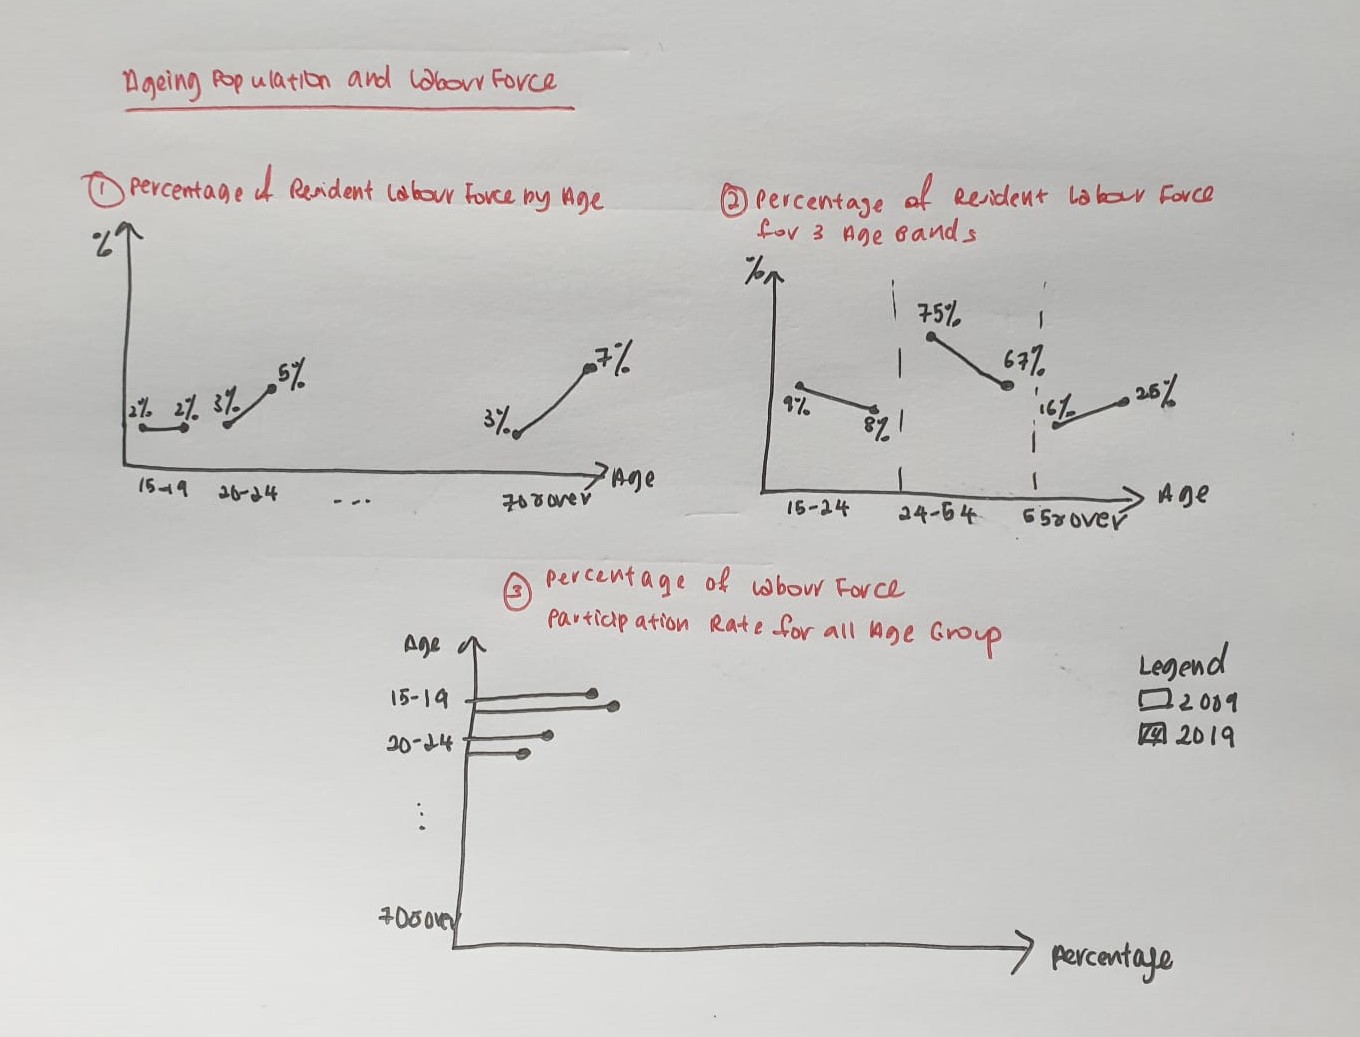 Ageing Population and Labour Force
① Percentage of Resident Labour Force by Age
%
2% 2% 3% 5%
3% 7%
15-19 20-24 ... 70 & over Age
② Percentage of Resident Labour Force
for 3 Age Bands
%
9% 8% 75% 67% 16% 25%
15-24 24-54 55 & over Age
③ Percentage of Labour Force
Participation Rate for all Age Group
Age
15-19
20-24
...
70 & over
Percentage
Legend
2009
2019